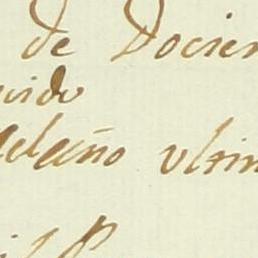 de Docien
uido
delaño ultim